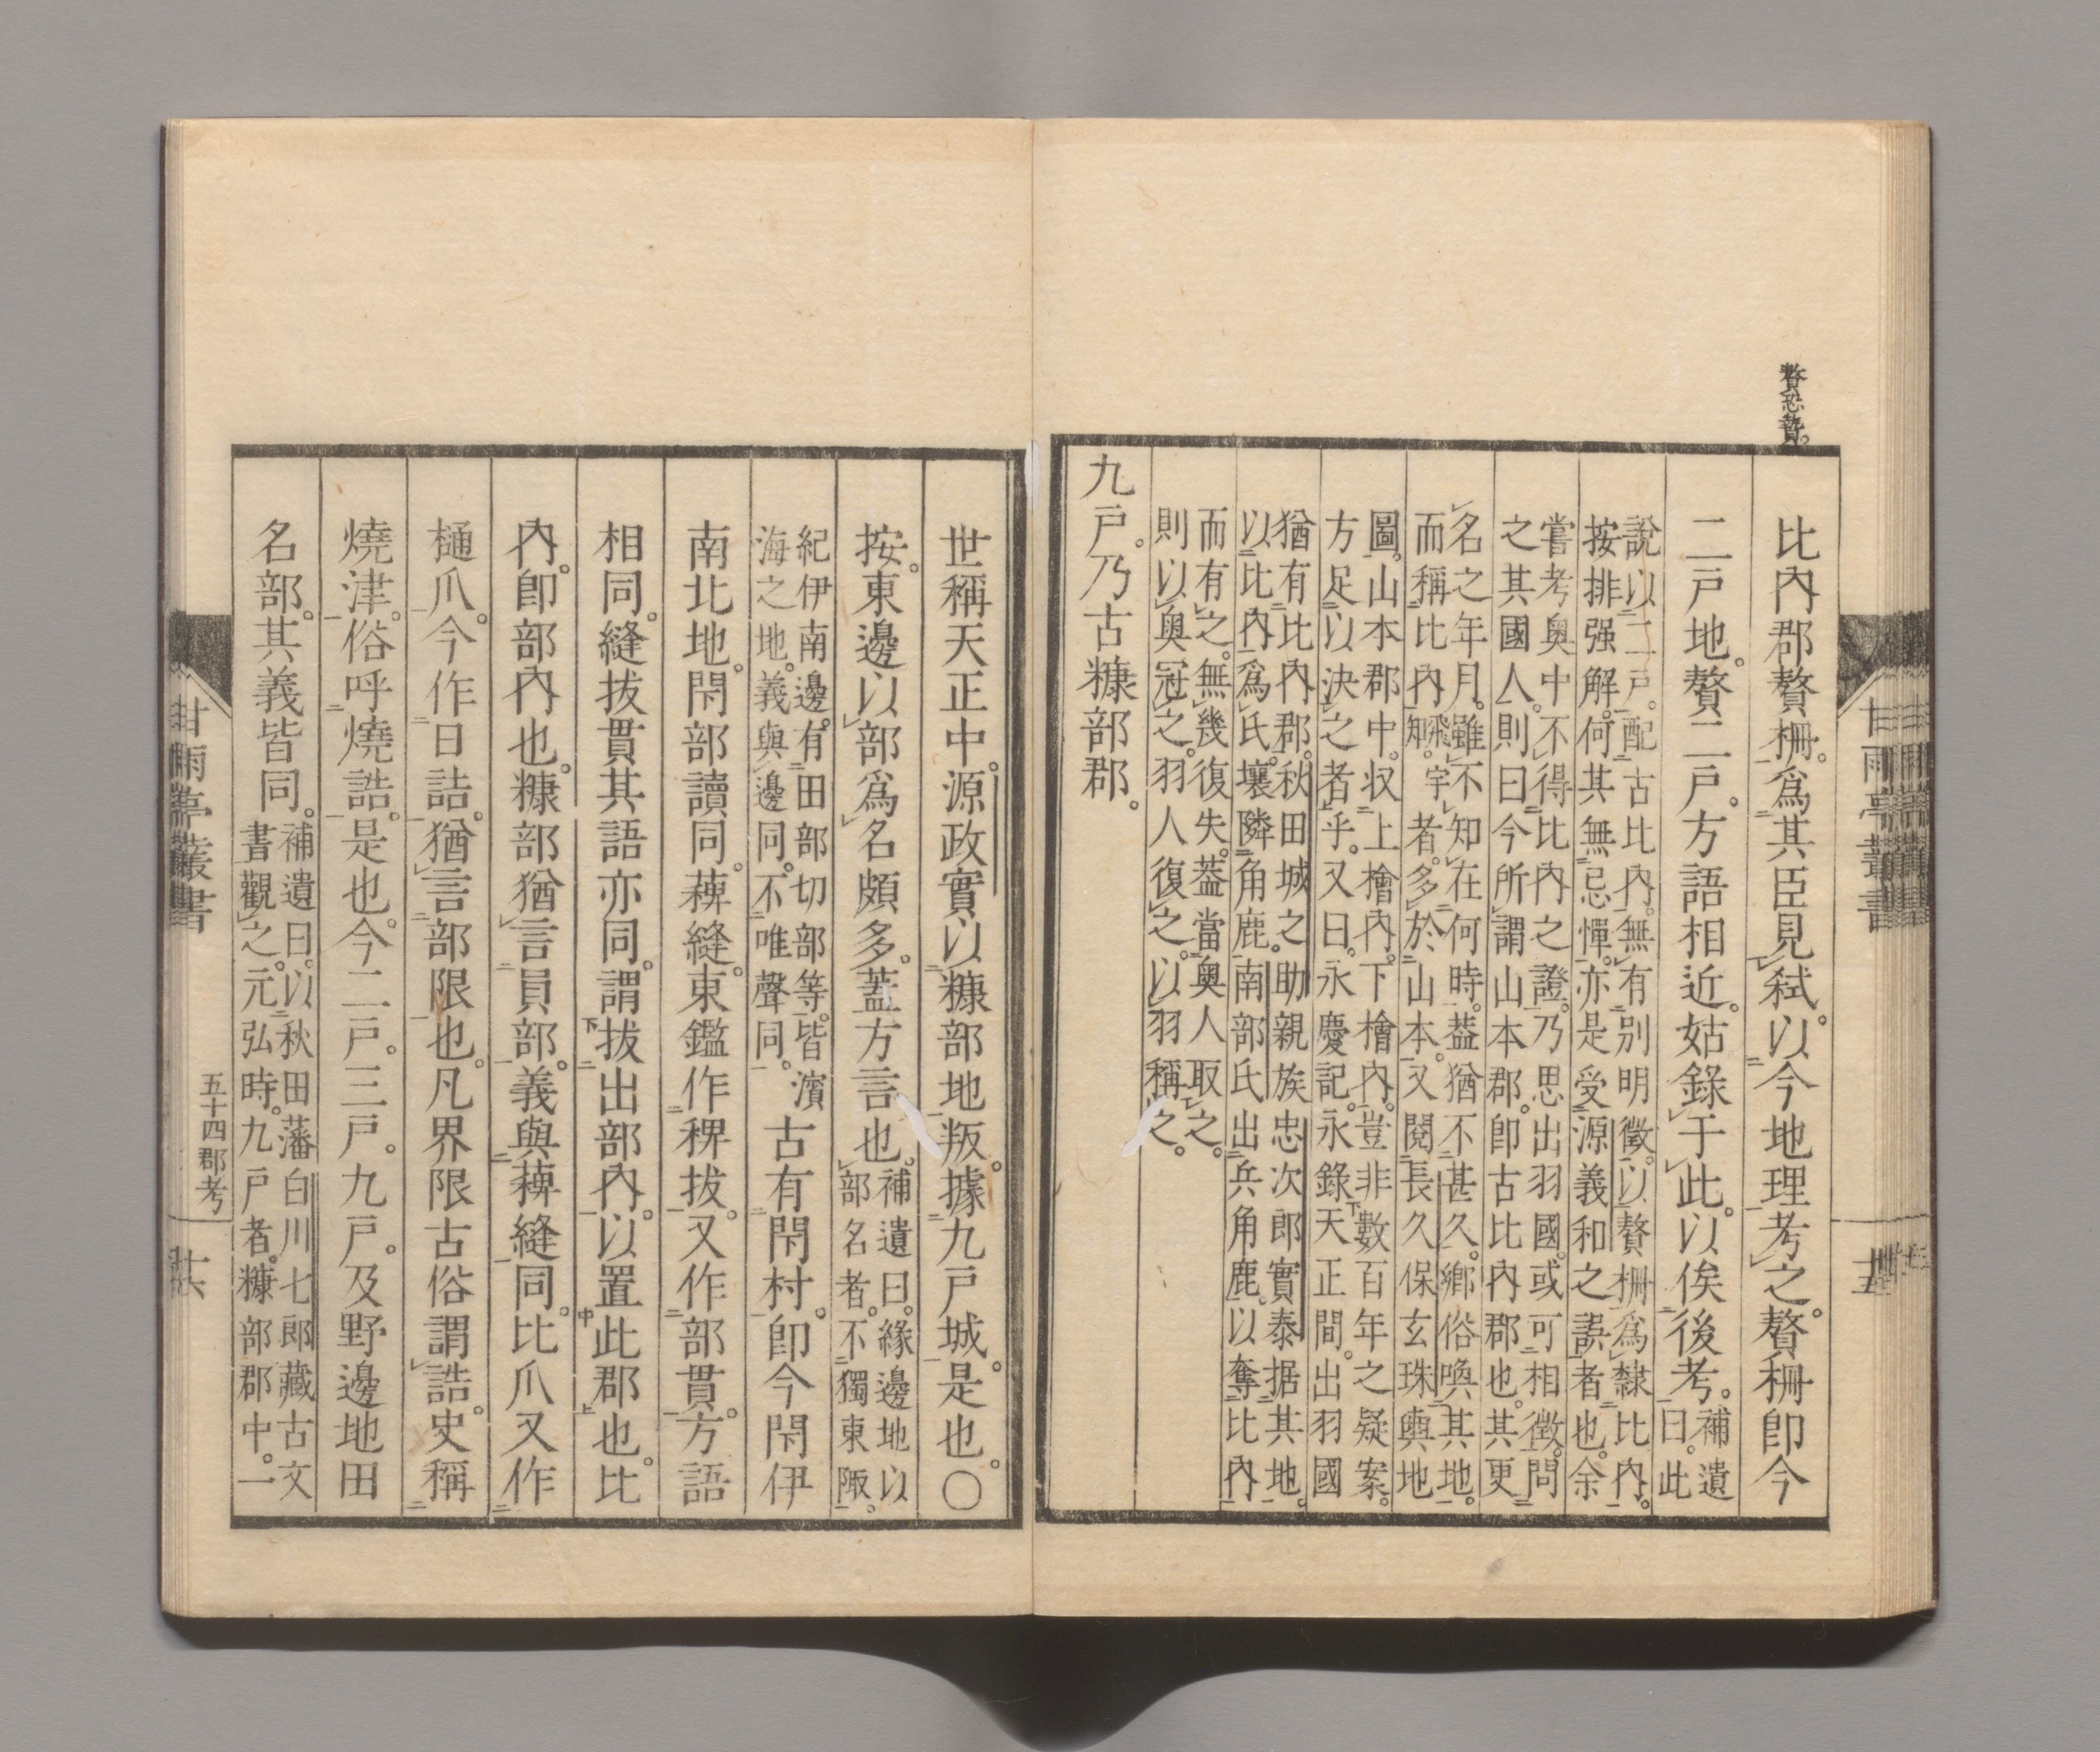 贅恐贄。
比內郡贅柵。爲其臣見弑。以今地理考之。贅柵卽今
二戶地。贅二戶。方語相近。姑錄于此。以俟後考。補遺
曰。此
說以二戶。配古比內。無有別明徵。以贅柵爲隸比內。
按排强解。何其無忌憚。亦是受源義和之誤者也。余
嘗考奧中。不得比內之證。乃思出羽國。或可相徵。問
之其國人。則曰今所謂山本郡。卽古比內郡也。其更
名之年月。雖不知在何時。葢猶不甚久。鄉俗喚其地。
而稱比內飛知。字者。多於山本。又閱長久保玄珠輿地
圖。山本郡中。収上檜內。下檜內。豈非數百年之疑案。
方足以決之者乎。又曰。永慶記。永錄天正間。出羽國
猶有比內郡。秋田城之助親族忠次郎實泰据其地。
以比內爲氏。壤隣角鹿。南部氏出兵角鹿。以奪比內
而有之。無幾復失。葢當奧人取之。
則以奧冠之。羽人復之。以羽稱之。
九戶。乃古糠部郡。
甘雨亭叢書
世稱天正中。源政實以糠部地叛。據九戶城。是也。〇
按。東邊以部爲名頗多。葢方言也。補遺曰。緣邊地以
部名者。不獨東陬。
紀伊南邊。有田部切部等。皆濱
海之地。義與邊同。不唯聲同。古有閇村。卽今閇伊
南北地。閇部讀同。薭縫。東鑑作稗拔。又作部貫。方語
相同。縫拔貫其語亦同。謂拔出部內。以置此郡也。比
內。卽部內也。糠部猶言員部。義與薭縫同。比爪又作
樋爪。今作日詰。猶言部限也。凡界限古俗謂誥。史稱
燒津。俗呼燒誥。是也。今二戶。三戶。九戶。及野邊地田
名部。其義皆同。補遺曰。以秋田藩白川七郎藏古文
書觀之。元弘時。九戶者。糠部郡中。一
甘雨亭叢書
五十四郡考
廿六